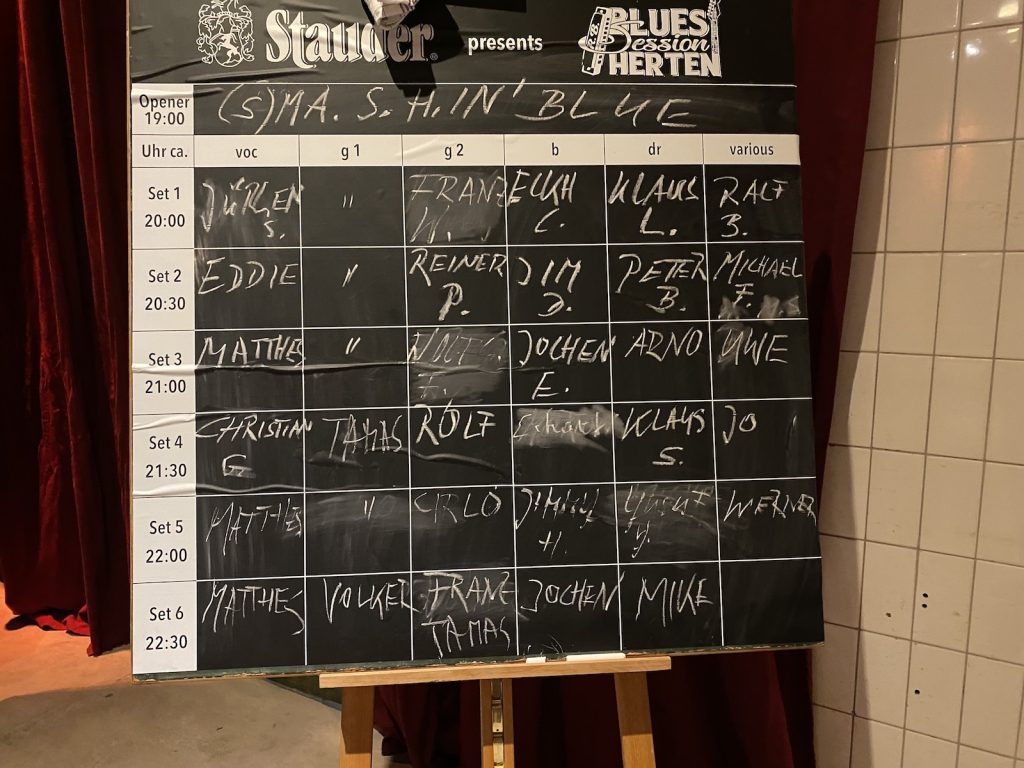 Stauder® presents BLUES Session HERTEN
Opener 19:00 (S)MA. S. H. IN' BLUE
Uhr ca. voc g 1 g 2 b dr various
Set 1 20:00 JÜRGEN S. " FRANZ W. ECKH C. KLAUS L. RALF B.
Set 2 20:30 EDDIE " REINER P. JIM D. PETER B. MICHAEL F.
Set 3 21:00 MATTHES " JOCHEN E. ARNO UWE
Set 4 21:30 CHRISTIAN G TAMAS ROLF KLAUS S. JO
Set 5 22:00 MATTHES " CARLO JIMMY H. WERNER
Set 6 22:30 MATTHES VOLKER FRANZ TAMAS JOCHEN MIKE